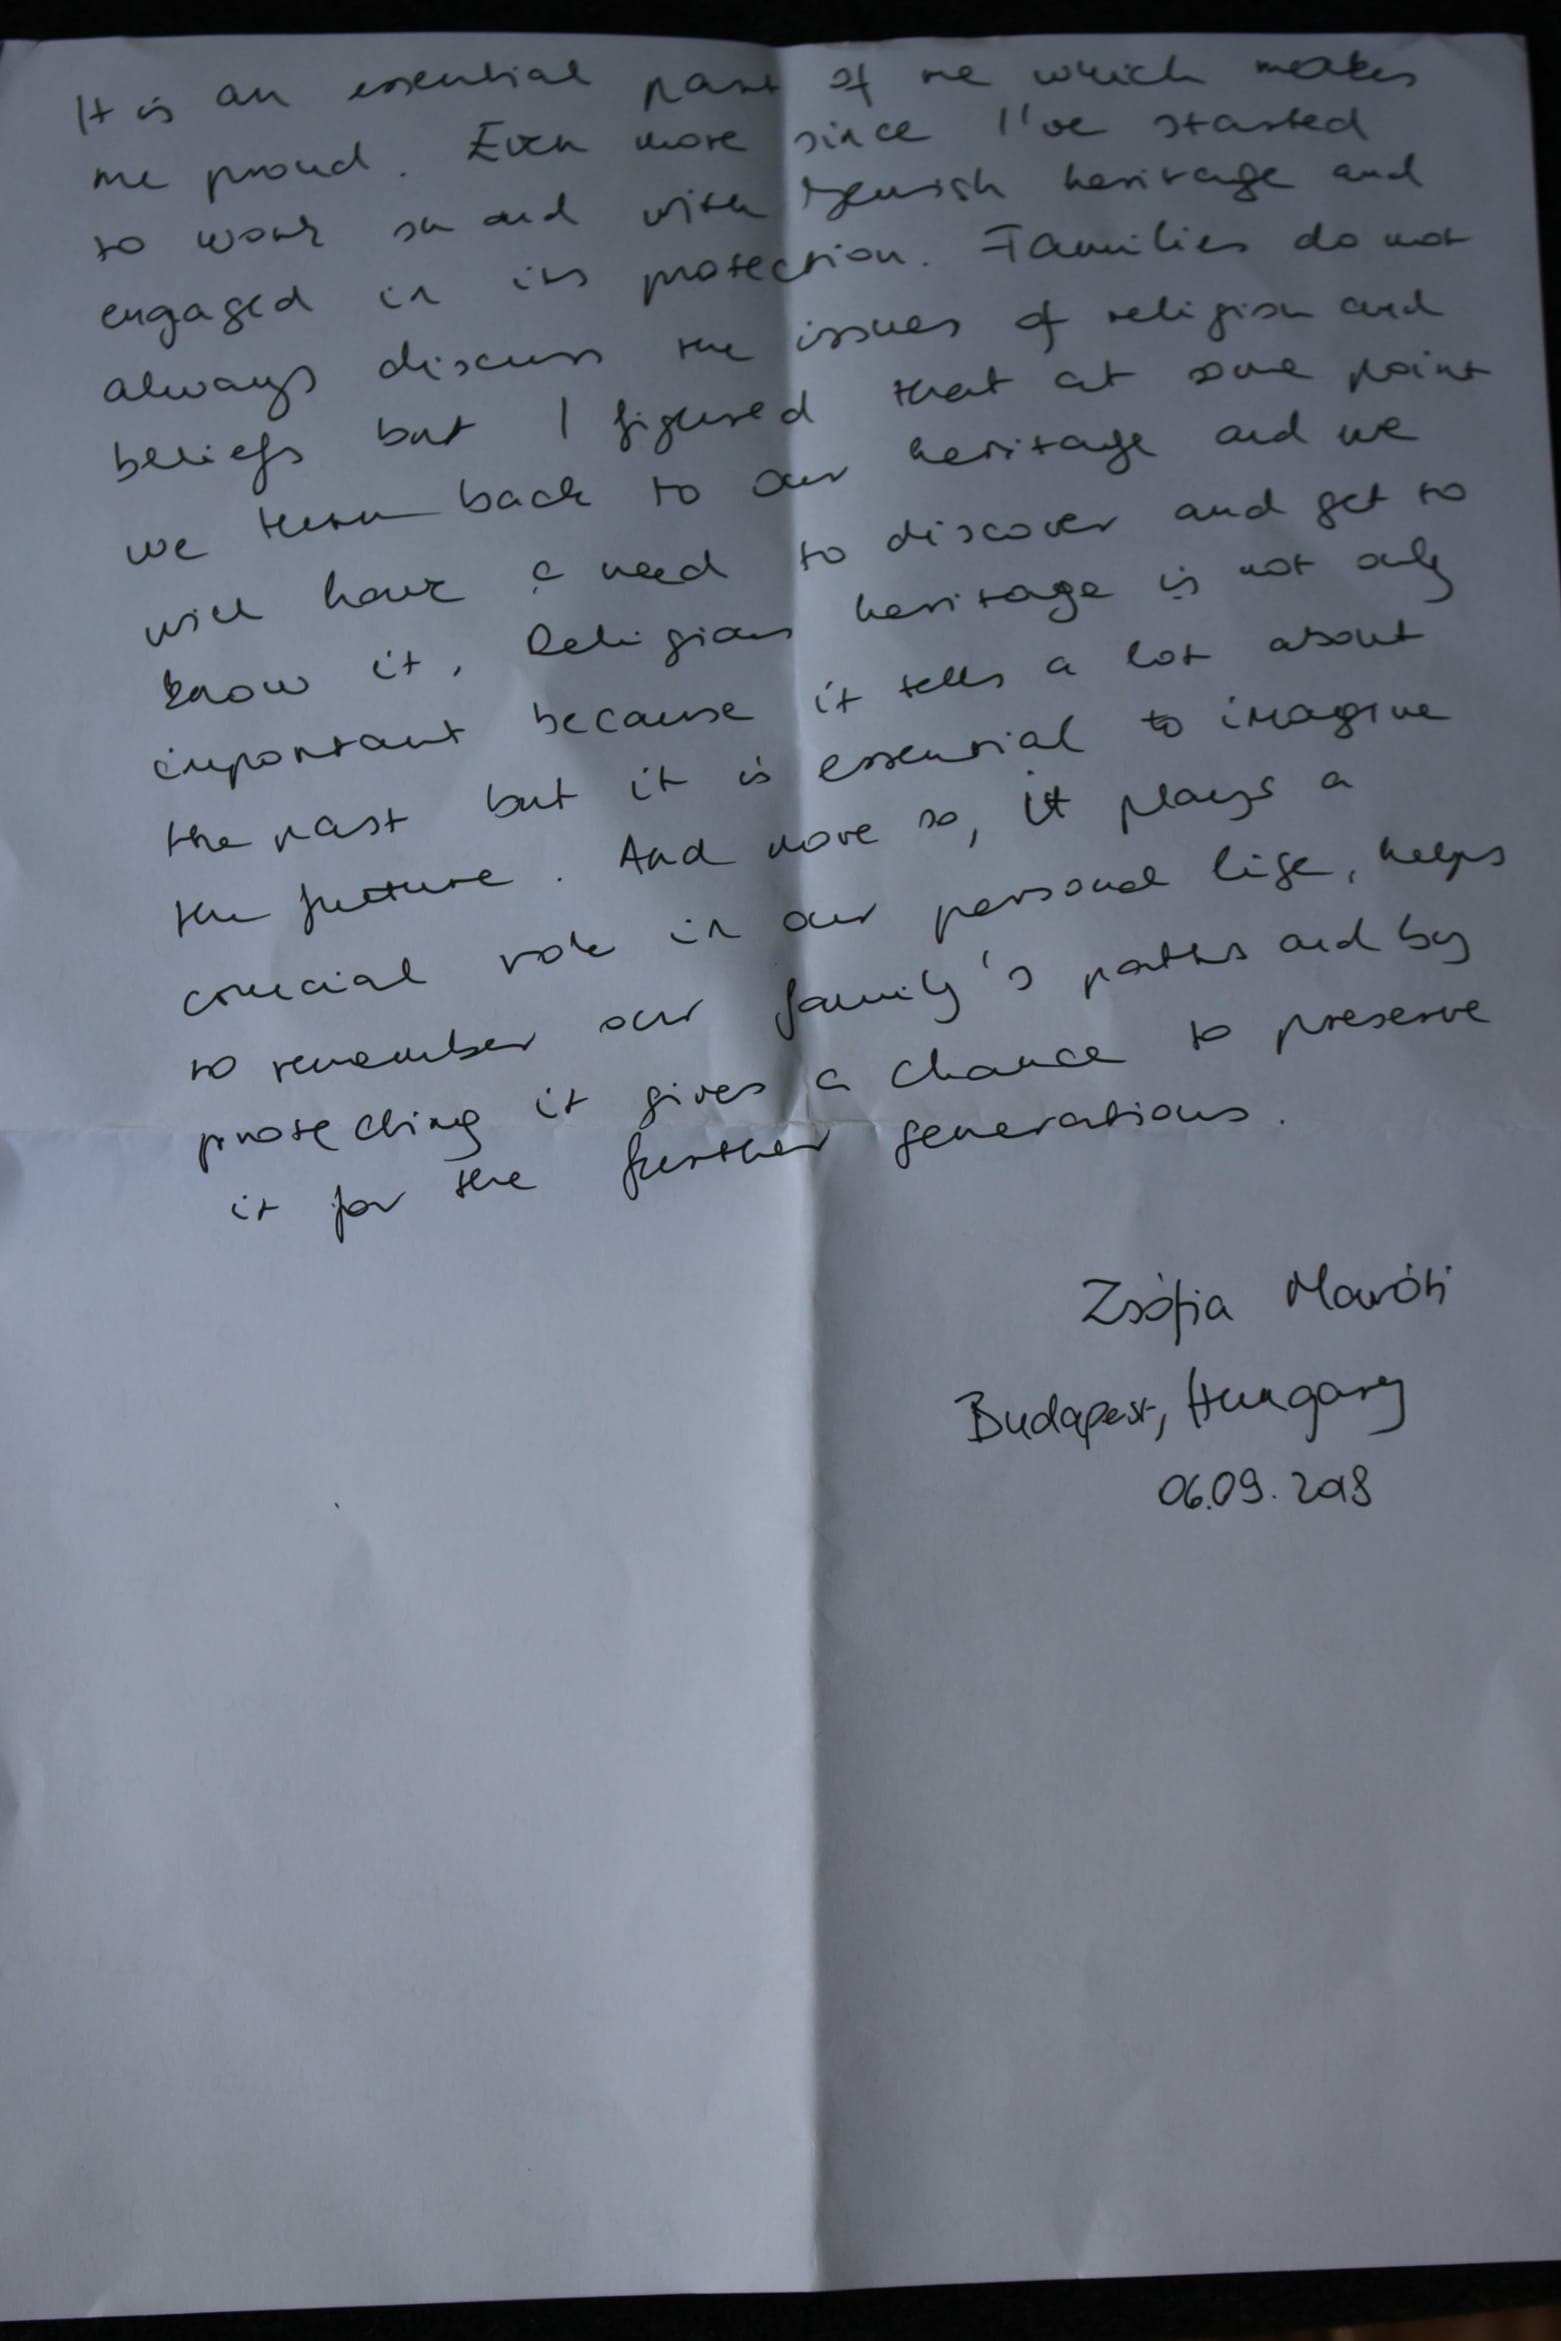 It is an essential part of me which makes
me proud. Even more since I've started
to work on and with Jewish heritage and
engaged in its protection. Families do not
always discuss the issues of religion and
beliefs but I figured that at some point
we turn back to our heritage and we
will have a need to discover and get to
know it. Religious heritage is not only
important because it tells a lot about
the past but it is essential to imagine
the future. And more so, it plays a
crucial role in our personal life, helps
to remember our family's paths and by
protecting it gives a chance to preserve
it for the further generations.
Zsófia Maróti
Budapest, Hungary
06.09.2018